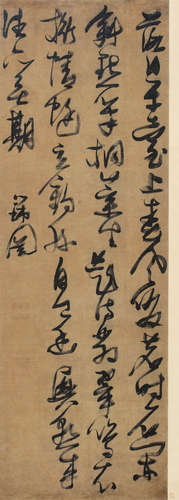 落日平臺上春風啜茗時石闌
斜點筆桐葉坐題詩翡翠鳴衣
桁蜻蜓立釣絲自今幽興熟來
往亦無期
瑞圖